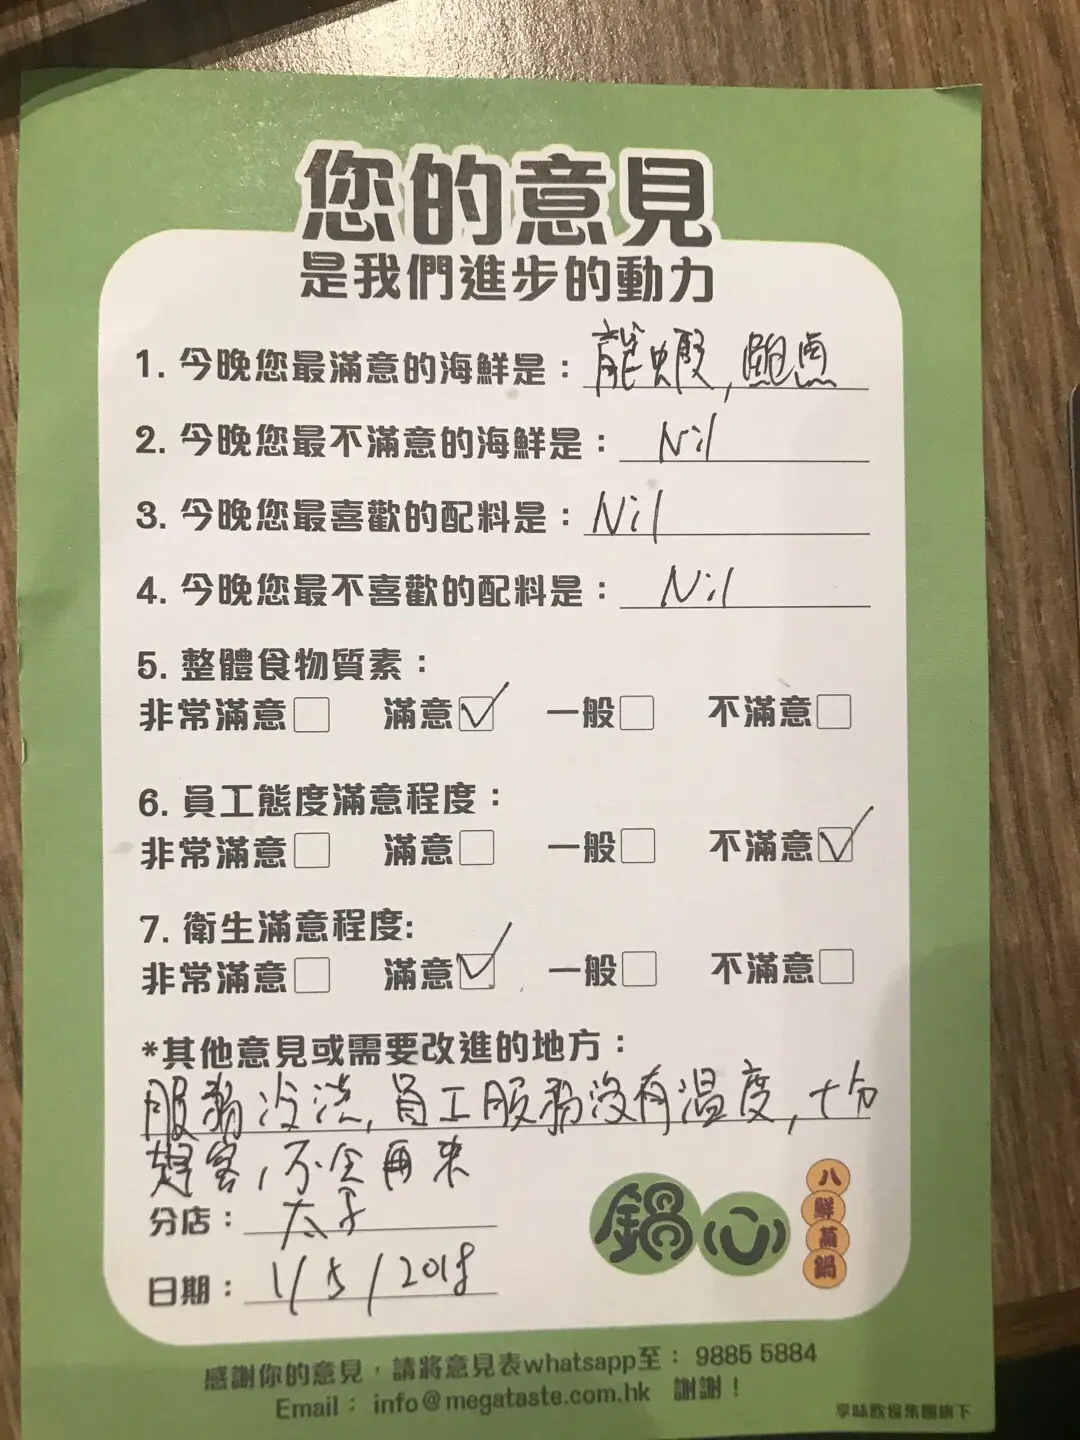 您的意見
是我們進步的動力
1. 今晚您最滿意的海鮮是：龍蝦,鮑魚
2. 今晚您最不滿意的海鮮是：Nil
3. 今晚您最喜歡的配料是：Nil
4. 今晚您最不喜歡的配料是：Nil
5. 整體食物質素：
非常滿意 滿意 一般 不滿意
6. 員工態度滿意程度：
非常滿意 滿意 一般 不滿意
7. 衛生滿意程度:
非常滿意 滿意 一般 不滿意
*其他意見或需要改進的地方：
服務冷淡,員工服務沒有溫度,十分
趕客,不會再來
分店：太子
日期：1/5/2018
鍋心
八鮮蒸鍋
感謝你的意見，請將意見表whatsapp至： 9885 5884
Email： info@megataste.com.hk 謝謝！
享味飲食集團旗下